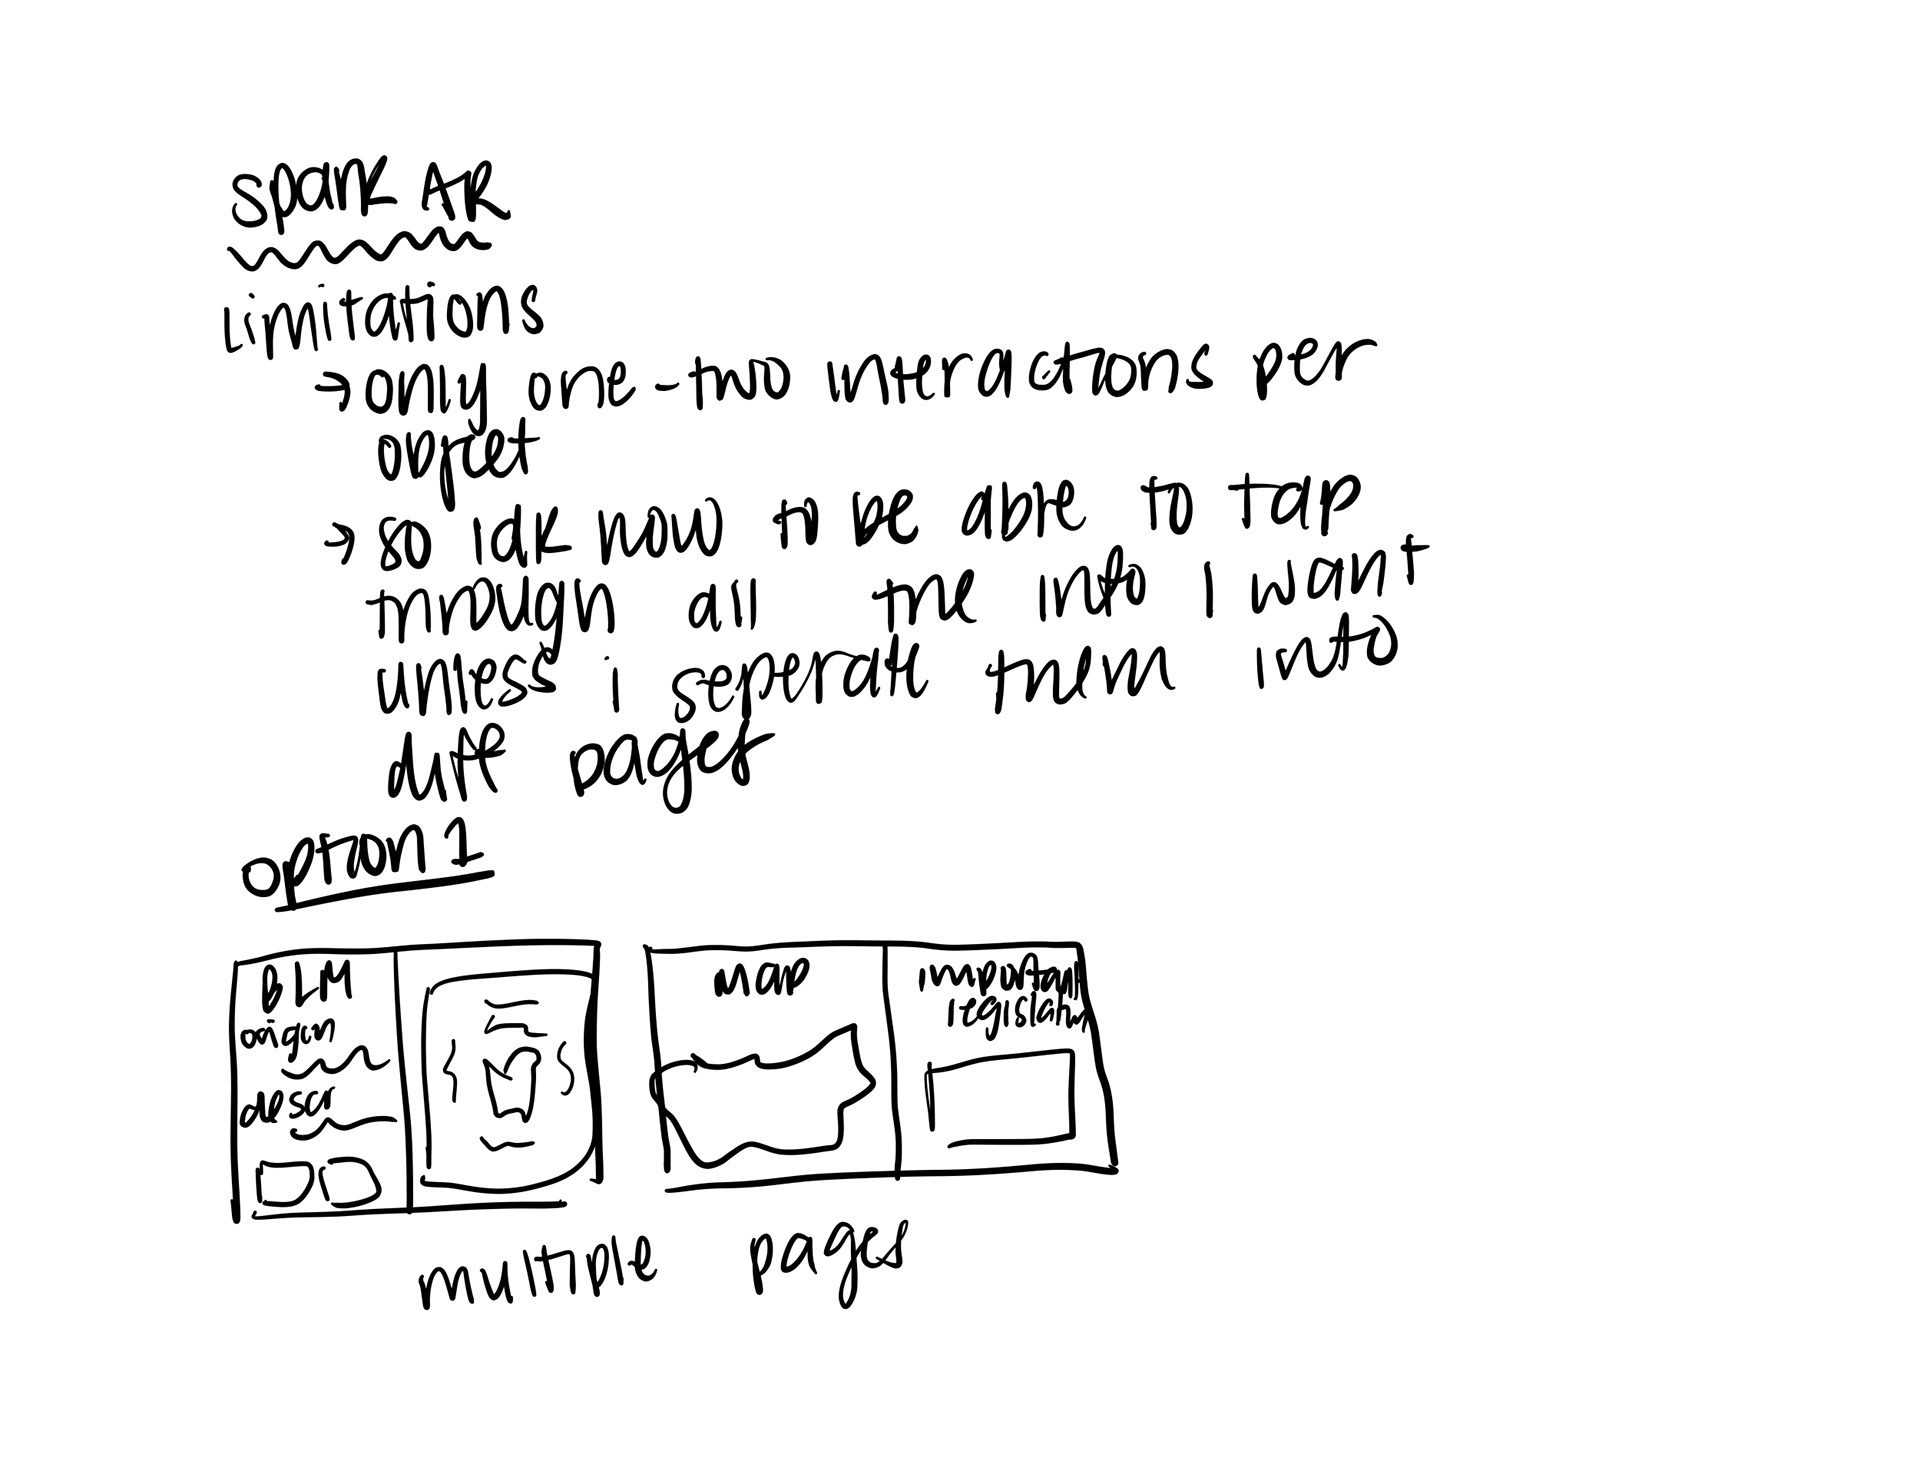 Spark AR
Limitations
→ only one-two interactions per
object
→ so idk how to be able to tap
through all the info I want
unless i seperate them into
diff pages
option 1
BLM
origin
descr
map
important
legislation
multiple pages